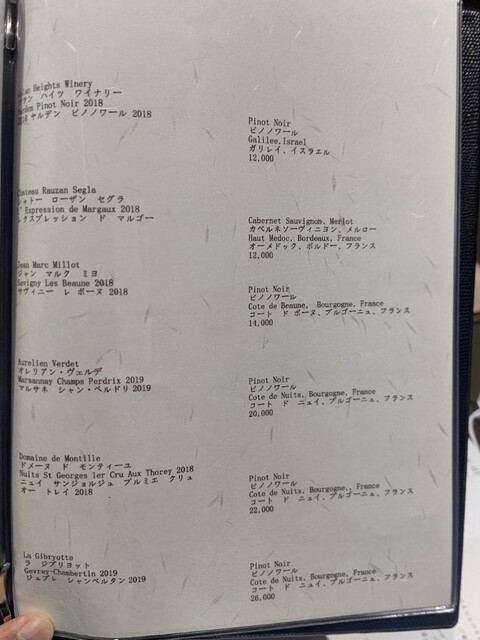 Heights Winery
ハイツ ワイナリー
Pinot Noir 2018
ヤルデン ピノノワール 2018
Pinot Noir
ピノノワール
Galilee,Israel
ガリレイ、イスラエル
12,000
Chateau Rauzan Segla
シャトー ローザン セグラ
Expression de Margaux 2018
レクスプレッション ド マルゴー
Cabernet Sauvignon, Merlot
カベルネソーヴィニヨン、メルロー
Haut Medoc, Bordeaux, France
オーメドック、ボルドー、フランス
12,000
Jean Marc Millot
ジャン マルク ミヨ
Savigny Les Beaune 2018
サヴィニー レ ボーヌ 2018
Pinot Noir
ピノノワール
Cote de Beaune, Bourgogne, France
コート ド ボーヌ、ブルゴーニュ、フランス
14,000
Aurelien Verdet
オレリアン・ヴェルデ
Marsannay Champs Perdrix 2019
マルサネ シャン・ペルドリ 2019
Pinot Noir
ピノノワール
Cote de Nuits, Bourgogne, France
コート ド ニュイ、ブルゴーニュ、フランス
20,000
Domaine de Montille
ドメーヌ ド モンティーユ
Nuits St Georges 1er Cru Aux Thorey 2018
ニュイ サンジョルジュ プルミエ クリュ
オー トレイ 2018
Pinot Noir
ピノノワール
Cote de Nuits, Bourgogne, France
コート ド ニュイ、ブルゴーニュ、フランス
22,000
La Gibryotte
ラ ジブリヨット
Gevrey-Chambertin 2019
ジュブレ シャンベルタン 2019
Pinot Noir
ピノノワール
Cote de Nuits, Bourgogne, France
コート ド ニュイ、ブルゴーニュ、フランス
26,000